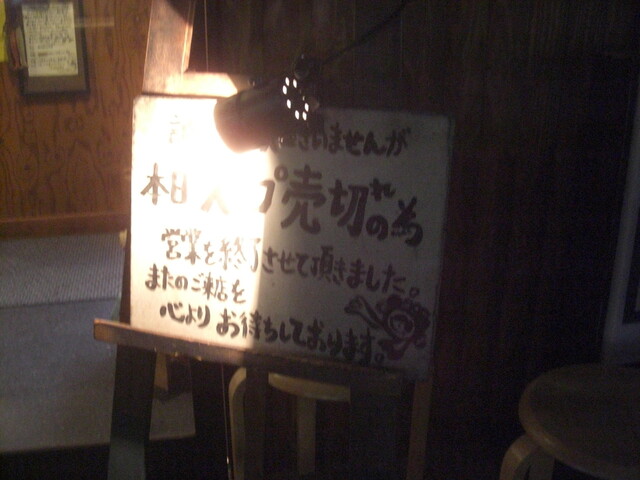 いませんが
本日スープ売切れの為
営業を終了させて頂きました。
またのご来店を
心よりお待ちしております。